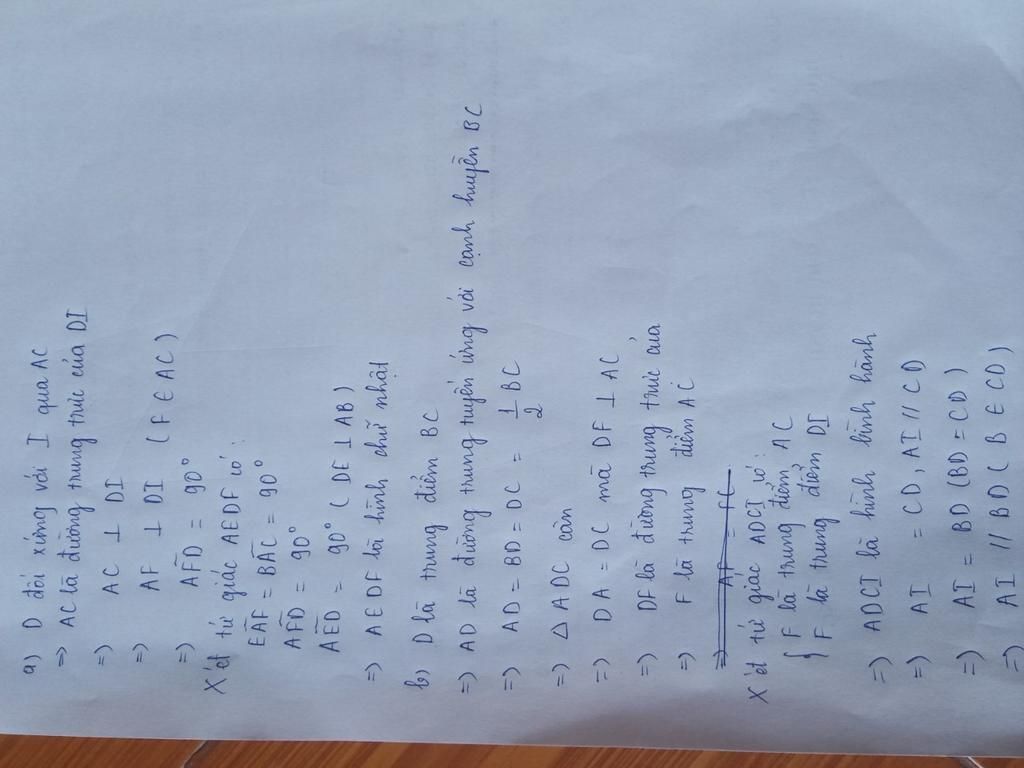 a) D đối xứng với I qua AC
=> AC là đường trung trực của DI
=) AC ⊥ DI
=) AF ⊥ DI (F ∈ AC)
=) AFD = 90°
Xét tứ giác AEDF có:
EAF = BAC = 90°
AFD = 90°
AED = 90° (DE ⊥ AB)
=) AEDF là hình chữ nhật
b) D là trung điểm BC
=) AD là đường trung tuyến ứng với cạnh huyền BC
=) AD = BD = DC = 1/2 BC
=) △ADC cân
=) DA = DC mà DF ⊥ AC
=) DF là đường trung trực của AC
=) F là trung điểm
=) AF = FC
Xét tứ giác ADCI có:
{ F là trung điểm AC
F là trung điểm DI
=) ADCI là hình bình hành
=) AI = CD, AI // CD
=) AI = BD (BD = CD)
=) AI // BD (B ∈ CD)